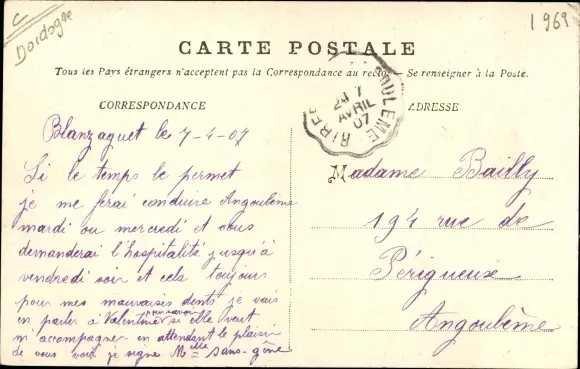 C
Dordogne
1969
CARTE POSTALE
Tous les Pays étrangers n'acceptent pas la Correspondance au recto Se renseigner à la Poste.
CORRESPONDANCE
ADRESSE
7
AVRIL
07
Blanzaguet le 7-4-07
Si le temps le permet
je me ferai conduire Angoulême
mardi ou mercredi et vous
demanderai l'hospitalité jusqu'à
vendredi soir et cela toujours
pour mes mauvaises dents je vais
en parler à Valentine pour savoir si elle veut
m'accompagner en attendant le plaisir
de vous voir je signe Melle Sans-gêne
Madame Bailly
194 rue de
Périgueux
Angoulême